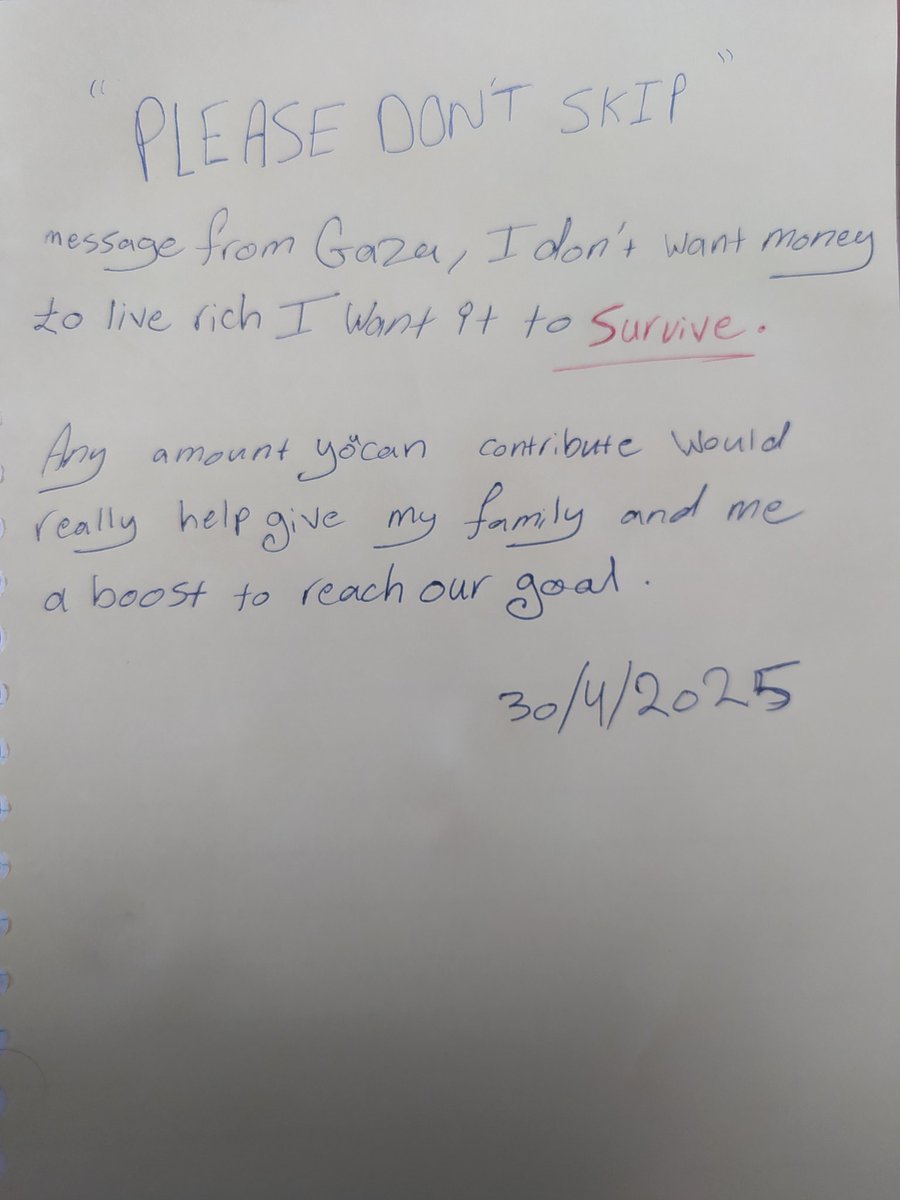 " PLEASE DON'T SKIP "
message from Gaza, I don't want money
to live rich I want it to Survive.
Any amount you can contribute would
really help give my family and me
a boost to reach our goal.
30/4/2025